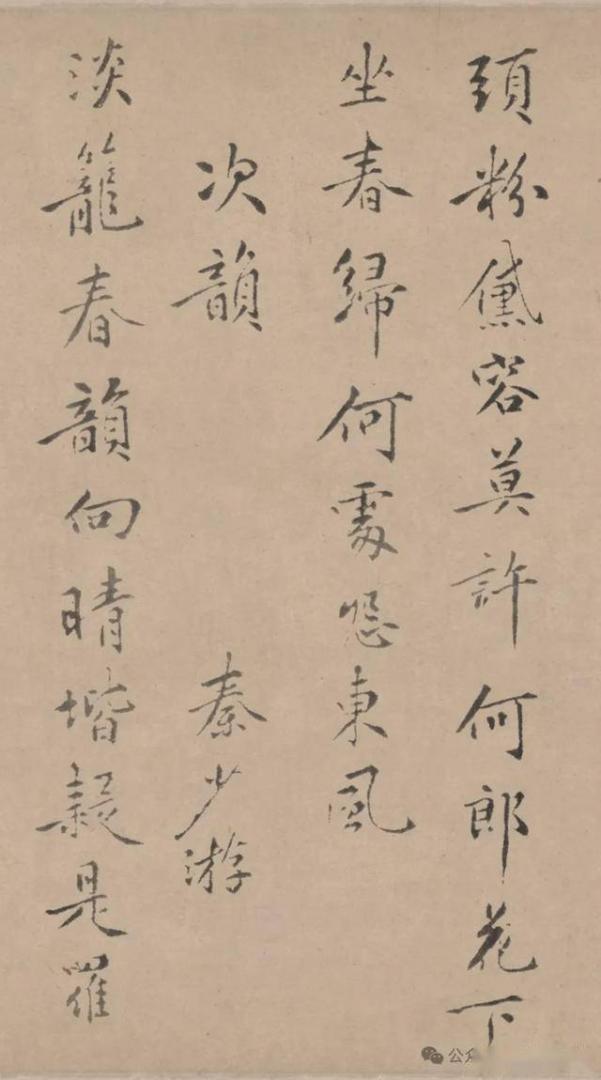 頭粉黛容莫許何郎花下
坐春歸何處怨東風
次韻 秦少游
淡籠春韻向晴堦疑是羅
公众